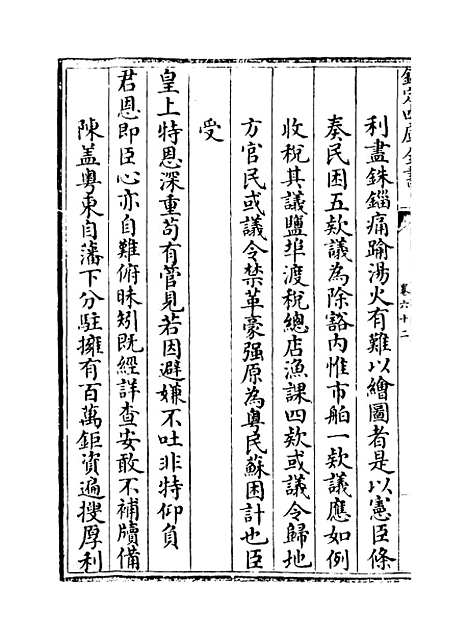 欽定四庫全書
卷六十二
利盡錙銖痛踰湯火有難以繪圖者是以憲臣條
奏民困五欵議為除豁内惟市舶一欵議應如例
收稅其議鹽埠渡稅總店漁課四欵或議令歸地
方官民或議令禁革豪强原為粤民蘇困計也臣
受
皇上特恩深重茍有管見若因避嫌不吐非特仰負
君恩即臣心亦自難俯昧矧既經詳查安敢不補牘備
陳盖粤東自藩下分駐擁有百萬鉅資遍搜厚利